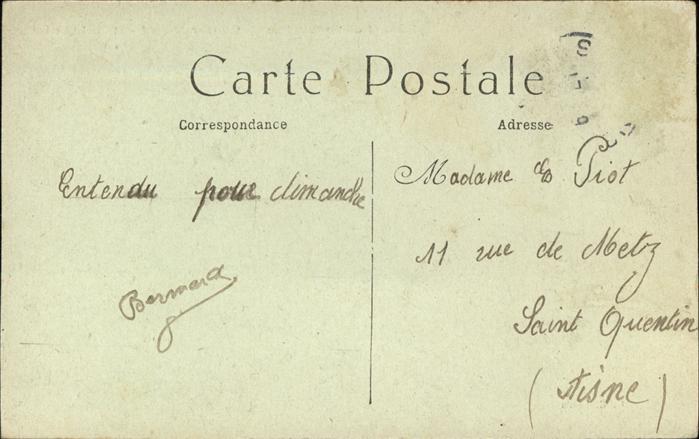 Carte Postale
Correspondance
Adresse
Entendu pour dimanche
Bernard
Madame E Piot
11 rue de Metz
Saint Quentin
(Aisne)